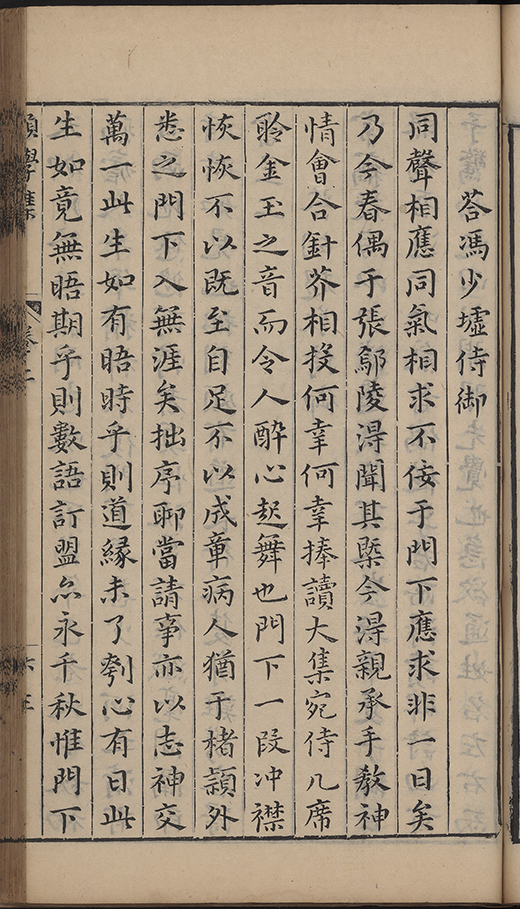 荅馮少墟侍御
同聲相應同氣相求不佞于門下應求非一日矣
乃今春偶于張鄢陵淂聞其槩今淂親承手教神
情會合針芥相投何幸何幸捧讀大集宛侍几席
聆金玉之音而令人醉心起舞也門下一段冲襟
恢恢不以既至自足不以成章病人猶于楮頴外
悉之門下入無涯矣拙序聊當請事亦以志神交
萬一此生如有晤時乎則道緣未了刳心有日此
生如竟無晤期乎則數語訂盟亦永千秋惟門下
學集
卷二